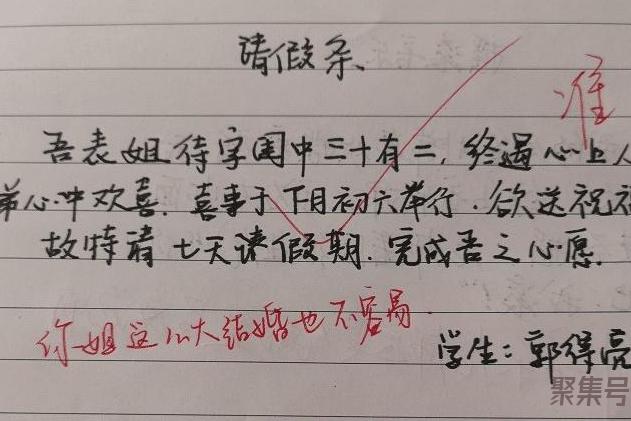 请假条
准
吾表姐待字闺中三十有二,终遇心上人
弟心中欢喜.喜事于下月初六举行.欲送祝福
故特请七天请假期.完成吾之心愿.
你姐这么大结婚也不容易.
学生:郭得亮
聚集号